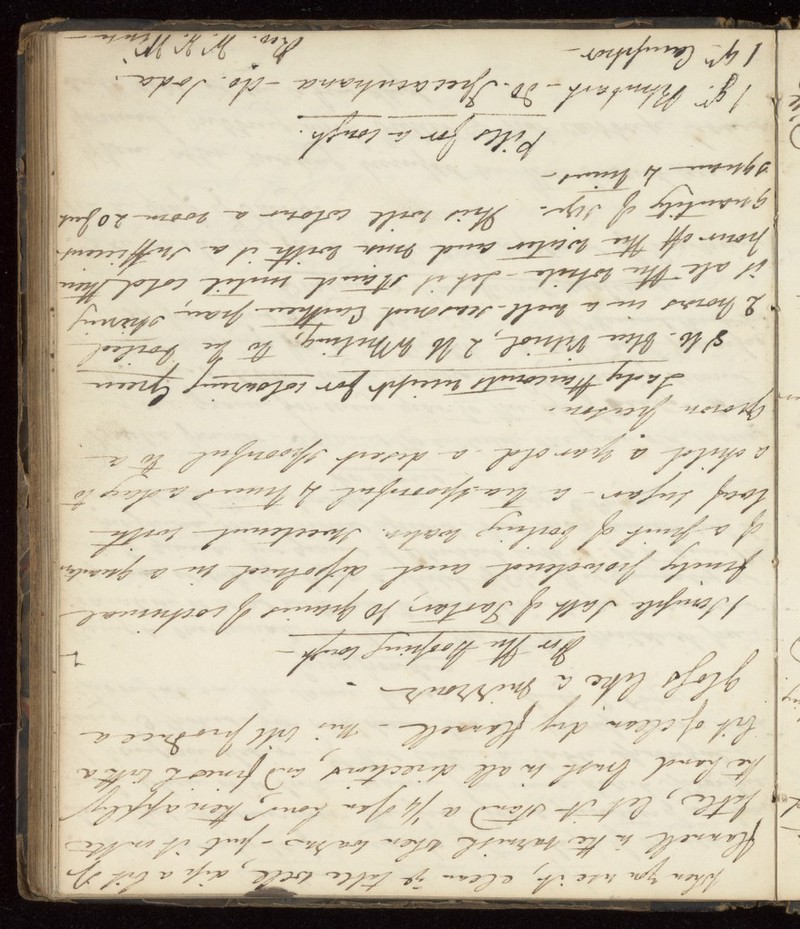 When you use it, clean yr table well, dip a bit of
flannel in the varnish when warm - put it on the
table, let it stand a 1/4 of an hour, then apply
the hand brush in all directions, and finish with a
bit of clean dry flannel - this will produce a
gloss like a mirror -
For the Hooping Cough -
1 Scruple Salt of Tartar, 10 grains of cochineal
finely powdered and dissolved in a quarter
of a pint of boiling water. Sweetened with
loaf sugar - a tea spoonful 4 times a day to
a child a year old - a desert spoonful to a
grown person.
Lady Harcourts receipt for colouring Green
8 lb. Blue Vitriol, 2 lb Whiting, to be boiled
2 hours in a well-seasoned Earthen pan, stirring
it all the while - Let it stand until cold then
pour off the water and mix with it a sufficient
quantity of size. This will colour a room 20 feet
square 4 times -
Pills for a Cough.
1 gr. Rhubarb - Do. Ipecacuanha - do. Soda.
1 gr. Camphor - Rev. W. W.